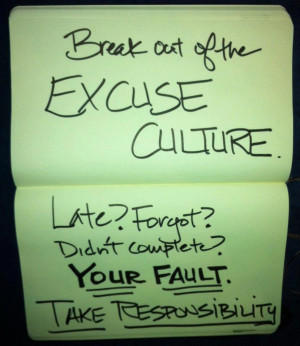 Break out of the
EXCUSE
CULTURE.
Late? Forgot?
Didn't complete?
YOUR FAULT.
TAKE RESPONSIBILITY